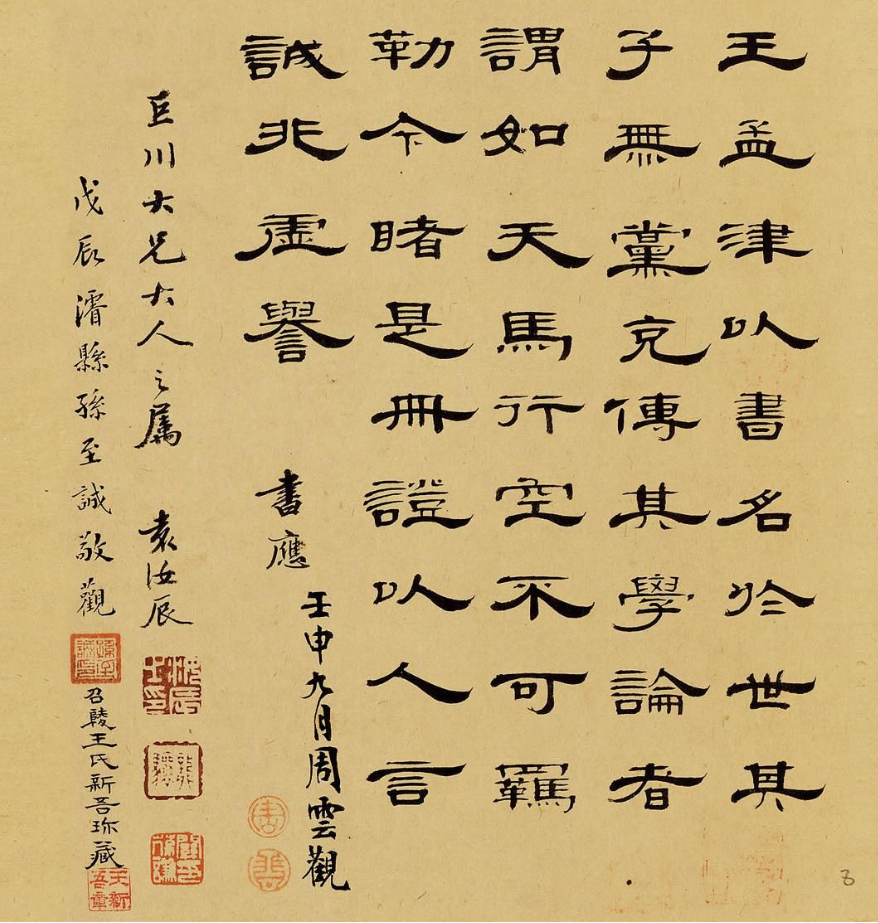 王孟津以書名於世其
子無黨克傳其學論者
謂如天馬行空不可羈
勒今睹是冊證以人言
誠非虛譽
壬申九月周雲觀
書應
巨川大兄大人之屬 袁汝辰
汝辰之印
戊辰濬縣孫至誠敬觀
召陵王氏新吾珍藏
王新吾章
8